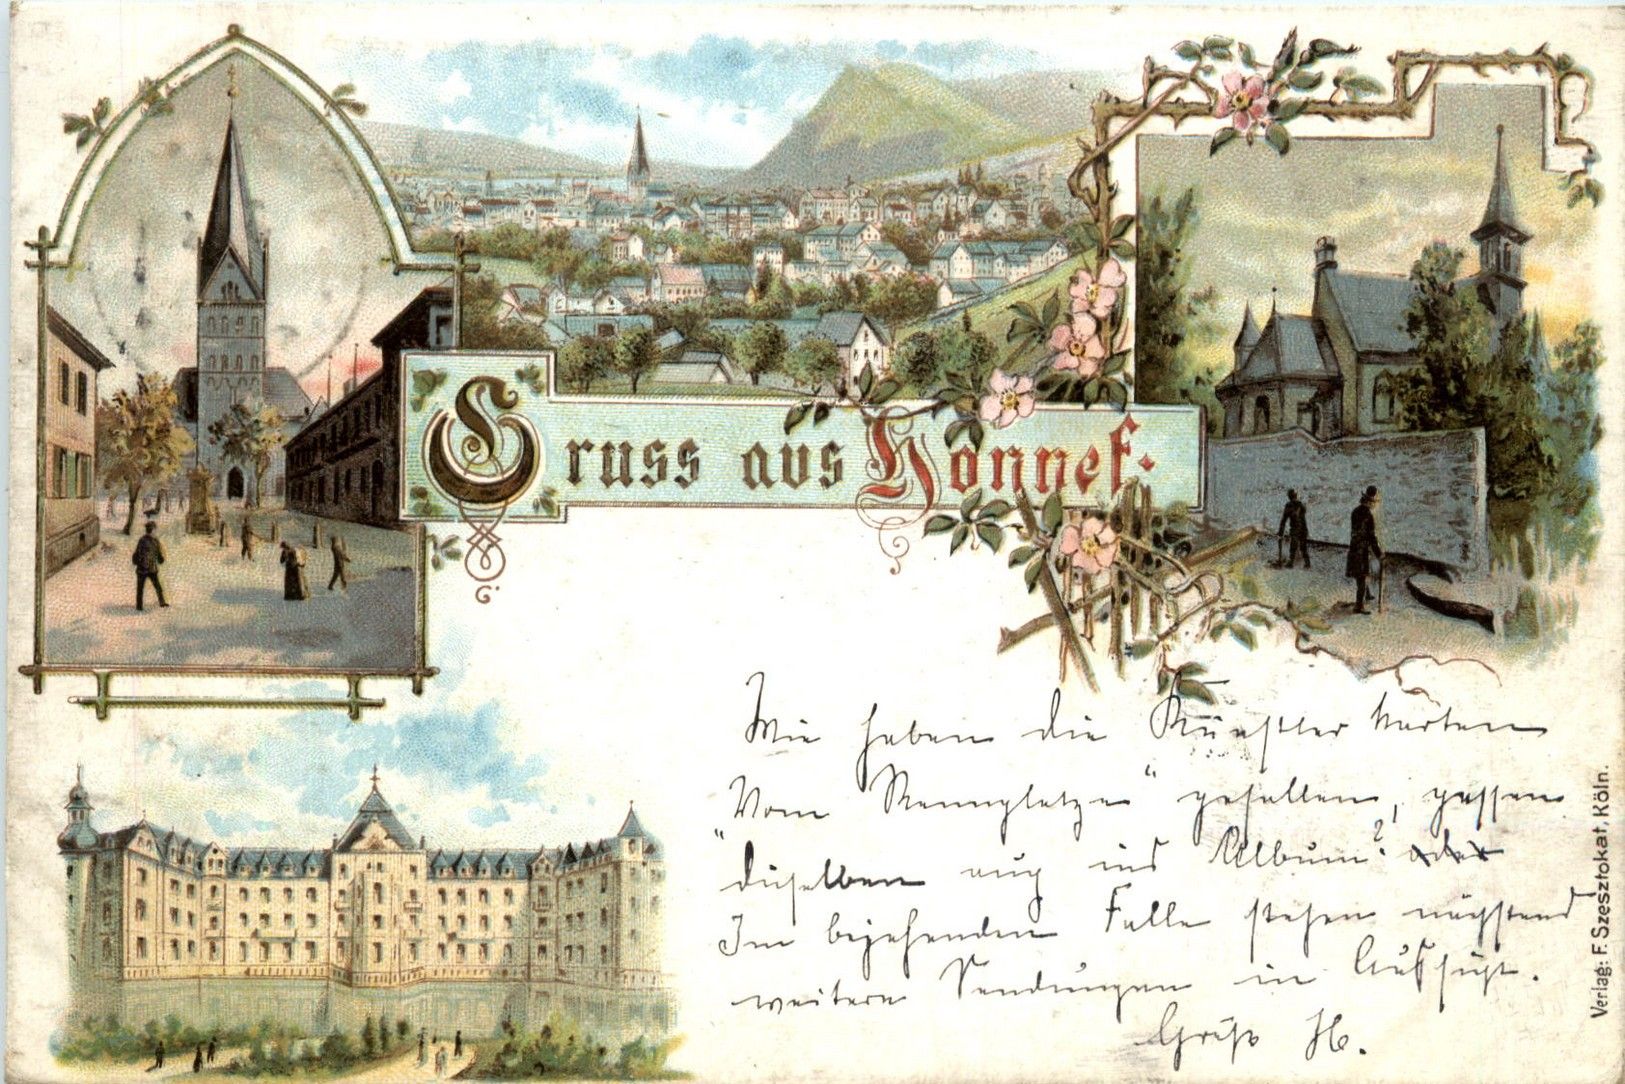 Gruss aus Honnef.
Wie haben die Künstler Karten
"Vom Rennplatze" gefallen, passen
dieselben auch ins Album? oder
Im bejahenden Falle stehen nächstens
weitere Sendungen in Aussicht.
Gruß H.
Verlag: F. Szesztokat, Köln.